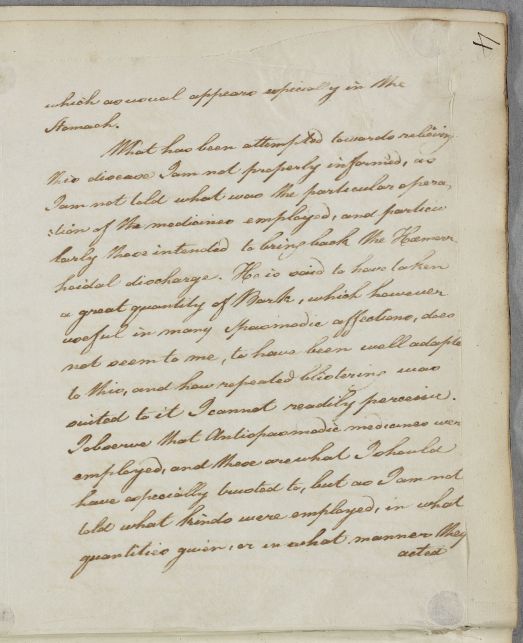 4
which as usual appears especially in the
Stomach.
What has been attempted towards relieving
this disease I am not properly informed, as
I am not told what was the particular opera,
:tion of the medicines employed, and particu
larly those intended to bring back the Hæmorr
hoidal discharge. He is said to have taken
a great quantity of Bark, which however
useful in many Spasmodic affections, does
not seem to me, to have been well adapte
to this, and how repeated blistering was
suited to it I cannot readily perceive.
I observe that Antispasmodic medicines wer
employed, and these are what I should
have especially trusted to, but as I am not
told what kinds were employed, in what
quantities given, or in what manner they
acted